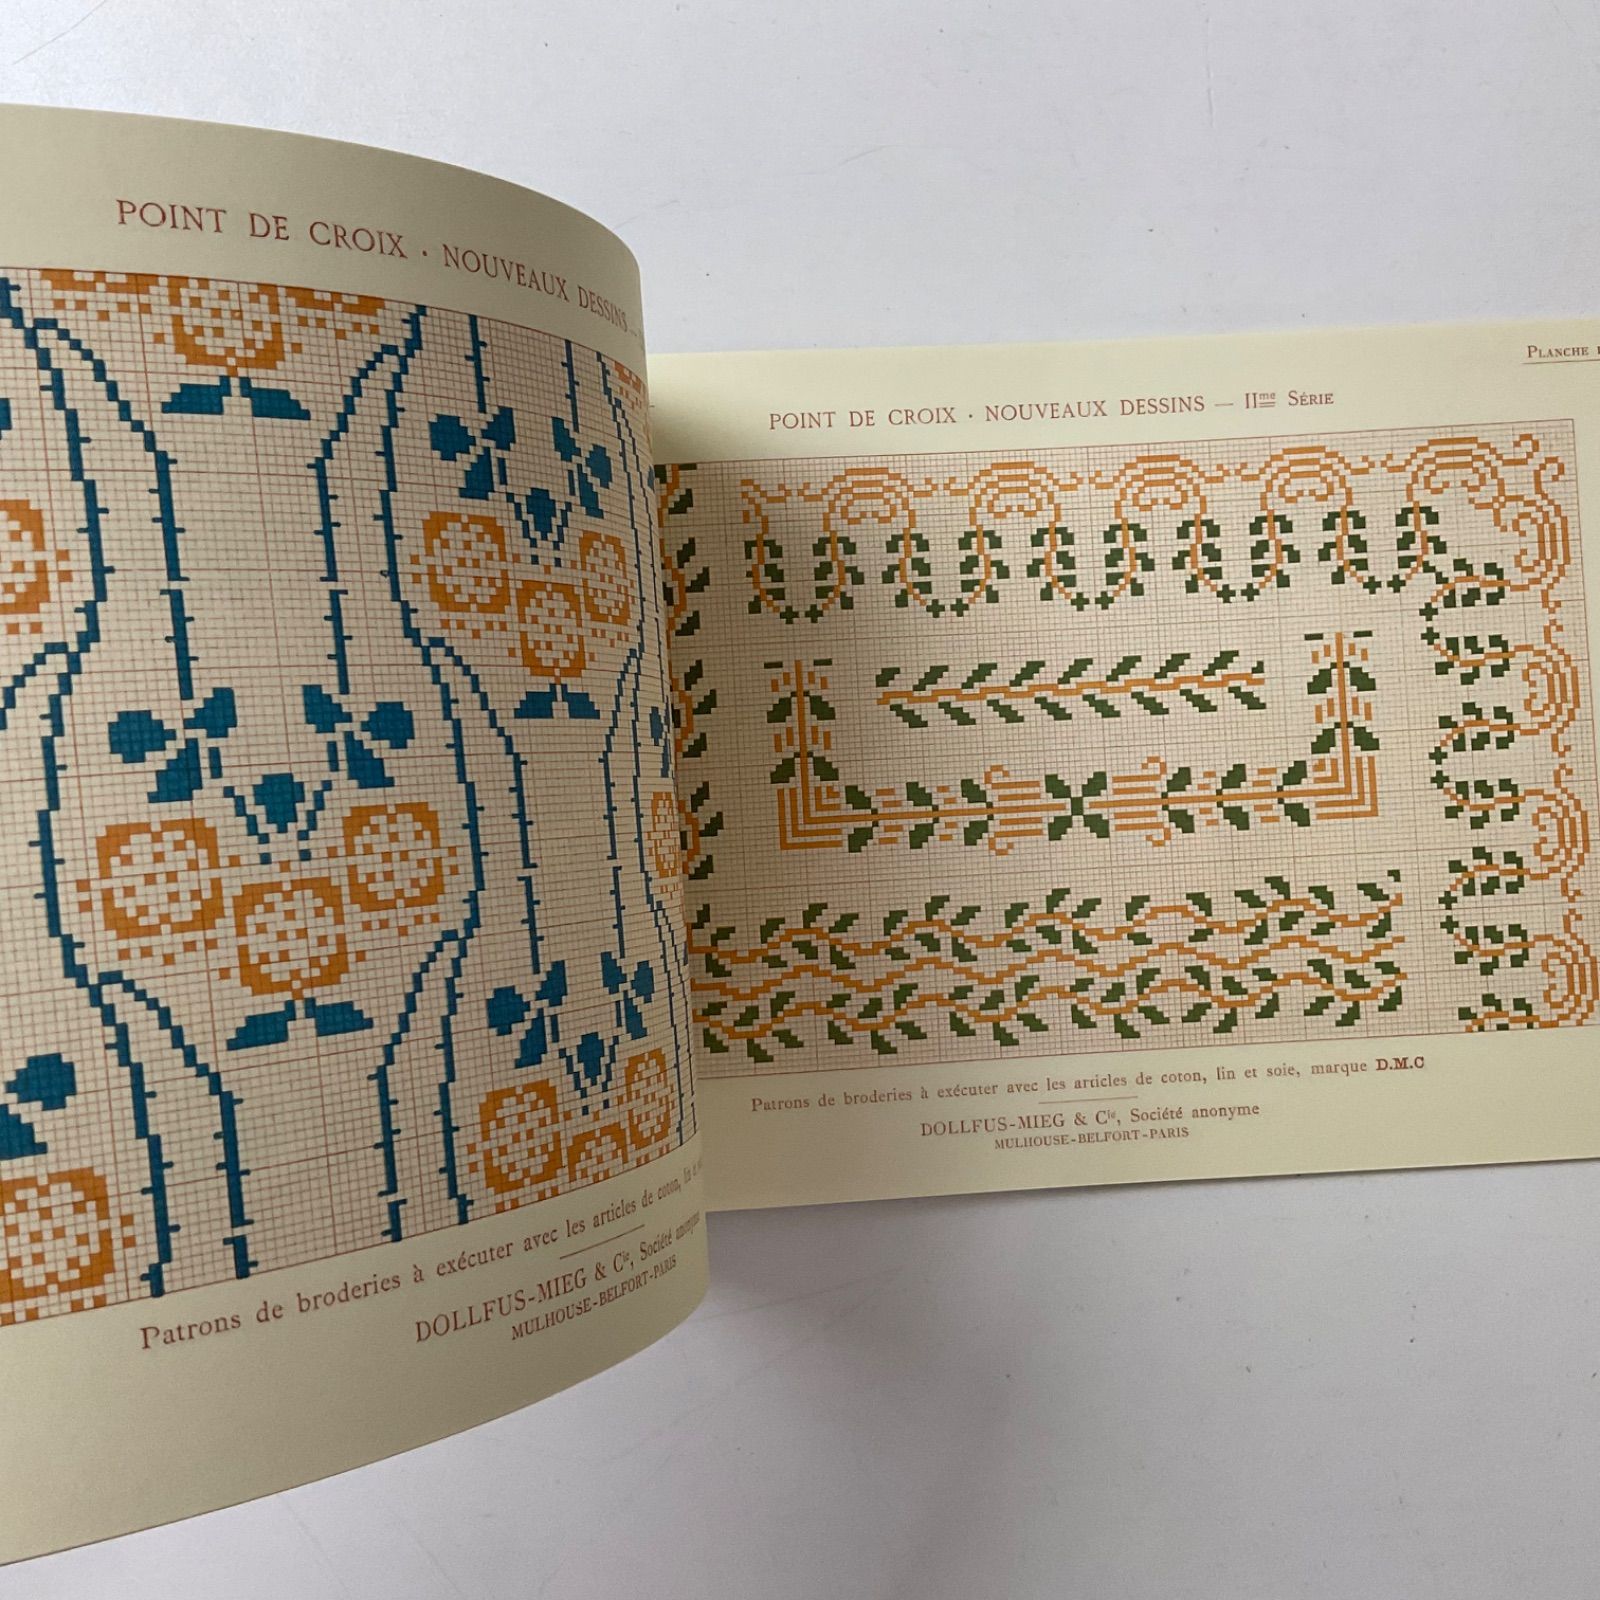 POINT DE CROIX · NOUVEAUX DESSINS —
Patrons de broderies à exécuter avec les articles de coton, lin
DOLLFUS-MIEG & Cie, Société anonyme
MULHOUSE-BELFORT-PARIS
PLANCHE
POINT DE CROIX · NOUVEAUX DESSINS — IIme SÉRIE
Patrons de broderies à exécuter avec les articles de coton, lin et soie, marque D.M.C
DOLLFUS-MIEG & Cie, Société anonyme
MULHOUSE-BELFORT-PARIS